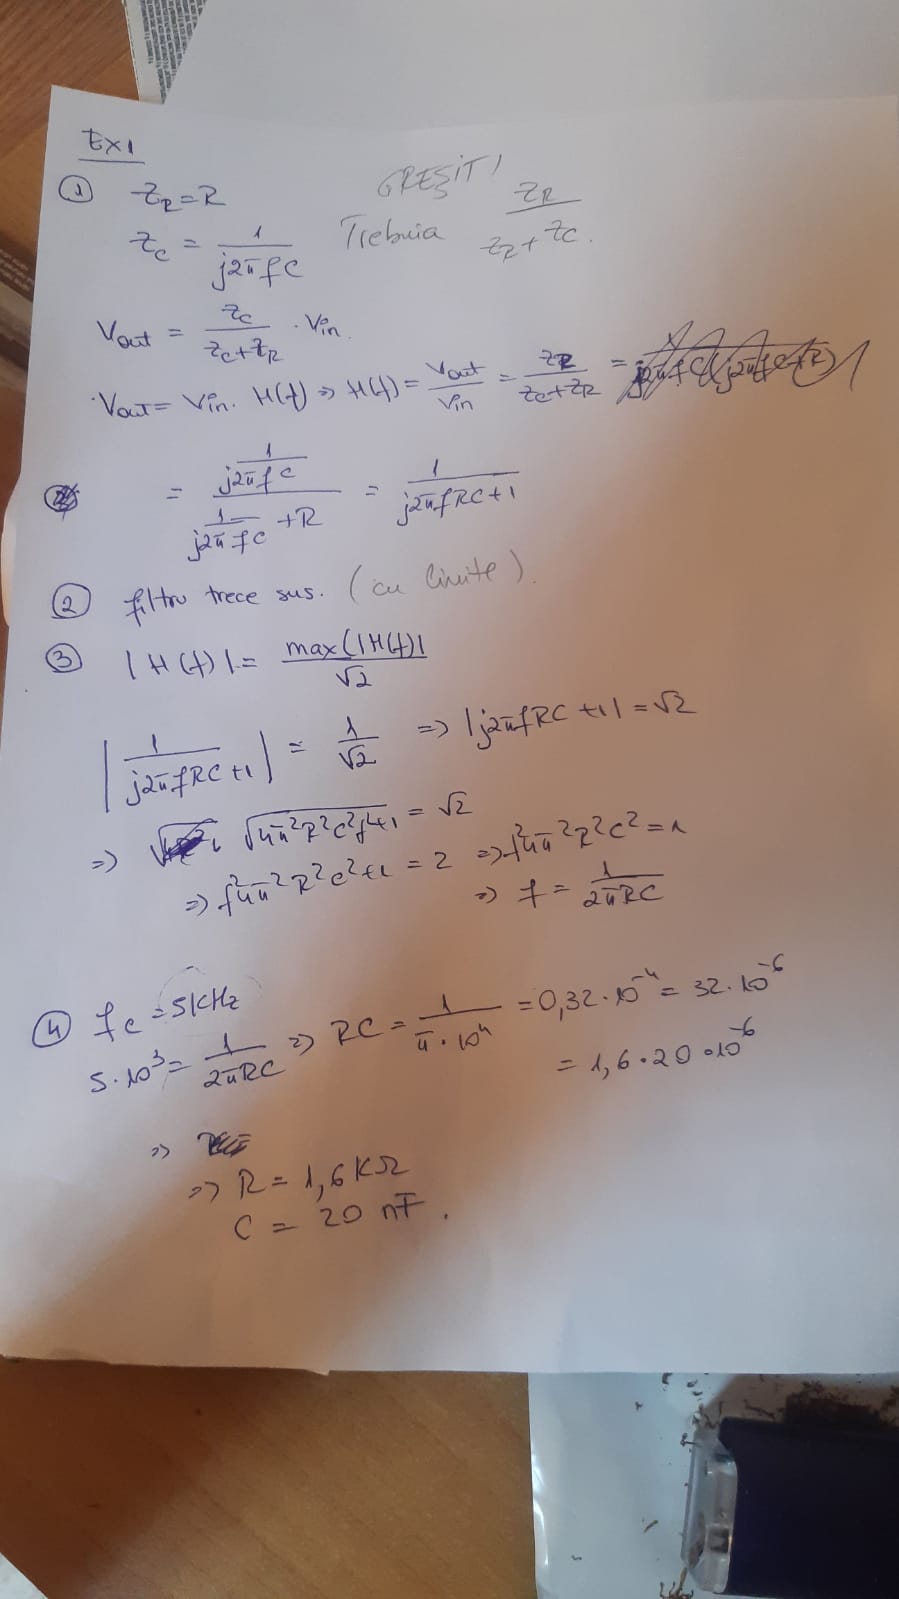 EX1
① Z_R = R
GREȘIT!
Z_C = 1/(j2πfC)
Trebuia Z_R/(Z_R + Z_C).
Vout = Z_C/(Z_C+Z_R) · Vin.
Vout = Vin. H(f) => H(f) = Vout/Vin = Z_R/(Z_C+Z_R) =
= (1/(j2πfC))/(1/(j2πfC) + R) = 1/(j2πfRC+1)
② filtru trece sus. (cu limite).
③ |H(f)| = max(|H(f)|)/√2
|1/(j2πfRC+1)| = 1/√2 => |j2πfRC+1| = √2
=> √(4π²R²C²f²+1) = √2
=> f²4π²R²C²+1 = 2 => f²4π²R²C² = 1
=> f = 1/(2πRC)
④ fc = 5KHz
5·10³ = 1/(2πRC) => RC = 1/(π·10⁴) = 0,32·10⁻⁴ = 32·10⁻⁶
= 1,6·20·10⁻⁶
=>
=> R = 1,6KΩ
C = 20 nF.